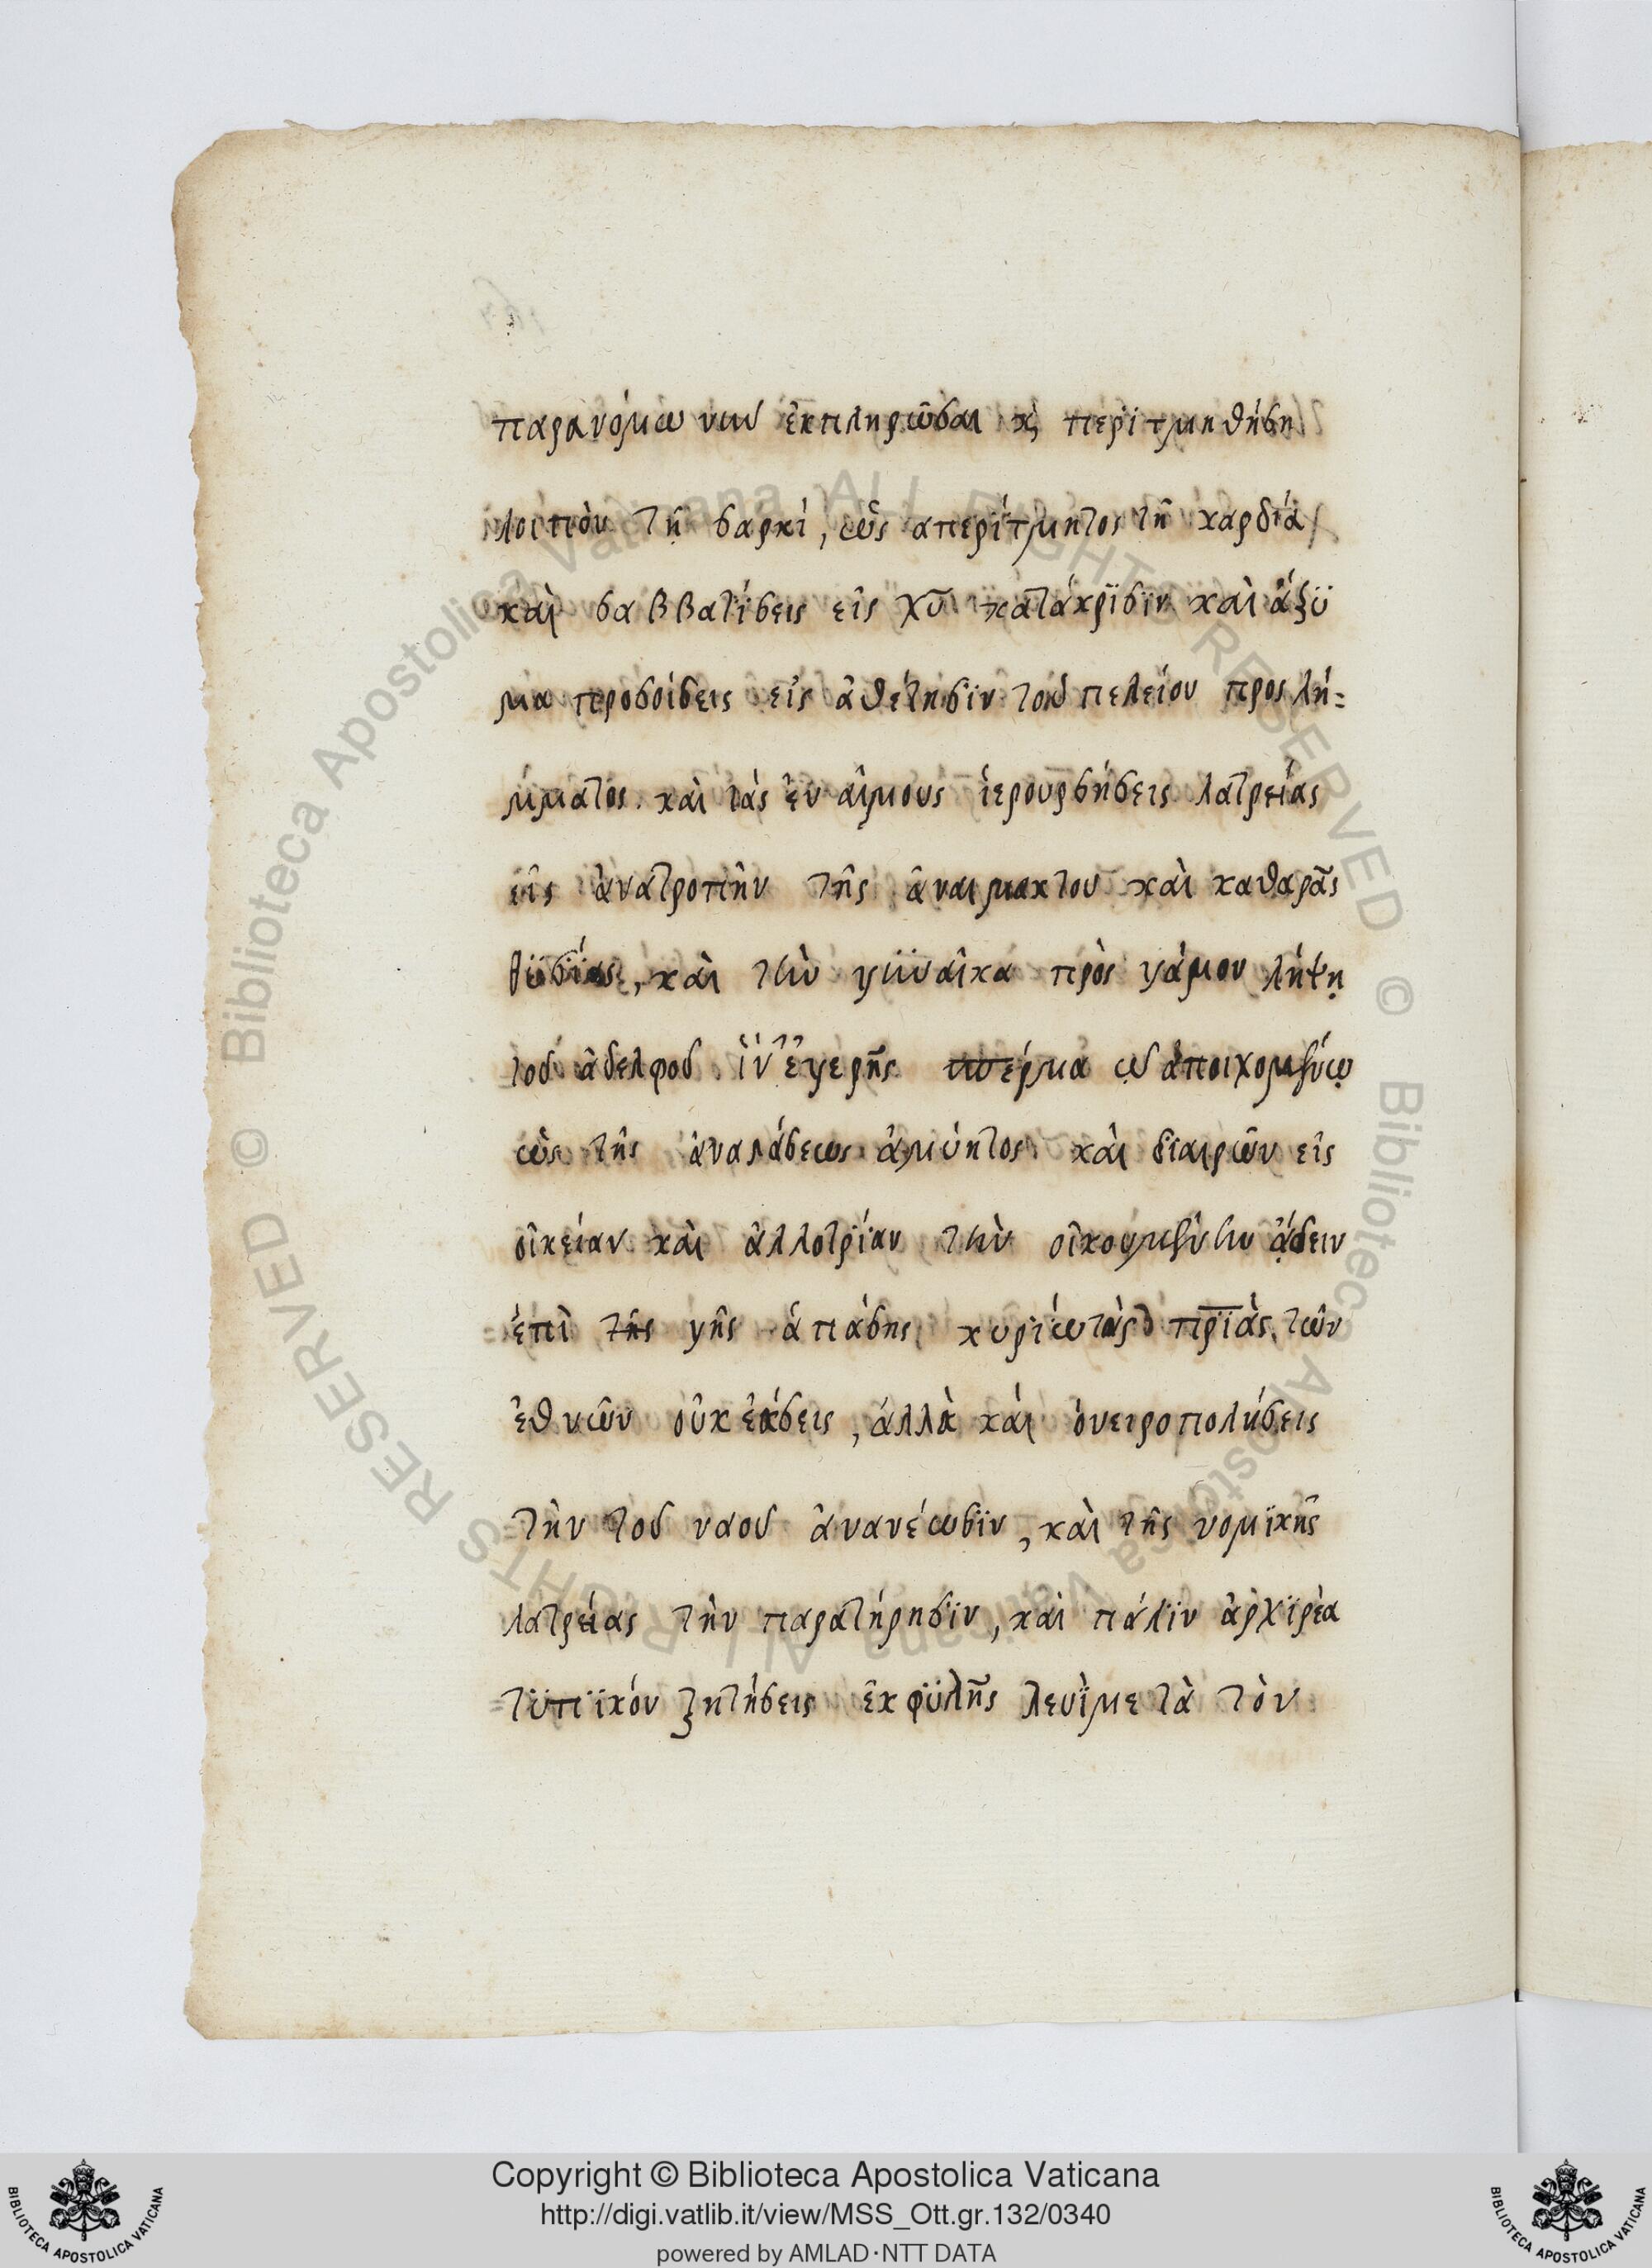 παρανόμων νυν ἐκπληρῶσαι κ περιτμηθήση
λοιπὸν τῆ σαρκί, ὡς απερίτμητος τῆ καρδία
καὶ σαββατίσεις εἰς χῦ κατάκρϊσϊν καὶ άζϋ
μα προσοίσεις εἰς ἀθέτησϊν τοῦ πελείου προςλή=
μματος. καὶ τὰς ἐν αἵμους ἱερουργήσεις λατρείας
εἰς ἀνατροπὴν τῆς ἀναιμακτου καὶ καθαρᾶς
θϋσϊας, καὶ τὴν γϋναῖκα πρὸς γάμον λήψη
τοῦ ἀδελφοῦ ἵν' ἐγερῆς σπέρμα τῷ ἀποιχομένῳ
ὡς τῆς ἀναστάσεως ἀμύητος καὶ διαιρῶν εἰς
οἰκείαν καὶ ἀλλοτρϊαν τὴν οἰκουμένην ᾄδειν
ἐπὶ τῆς γῆς ἁπάσης κυρϊω τὰς πρϊὰς τῶν
ἐθνῶν οὐκ ἐάσεις, ἀλλὰ καὶ ὀνειροπολήσεις
τὴν τοῦ ναοῦ ἀνανέωσϊν, καὶ τῆς νομϊκῆς
λατρείας τὴν παρατήρησϊν, καὶ πάλϊν ἀρχϊρέα
τϋπϊκόν ζητήσεις ἐκ φϋλῆς λευῒ μετὰ τὸν
Copyright © Biblioteca Apostolica Vaticana
http://digi.vatlib.it/view/MSS_Ott.gr.132/0340
powered by AMLAD·NTT DATA